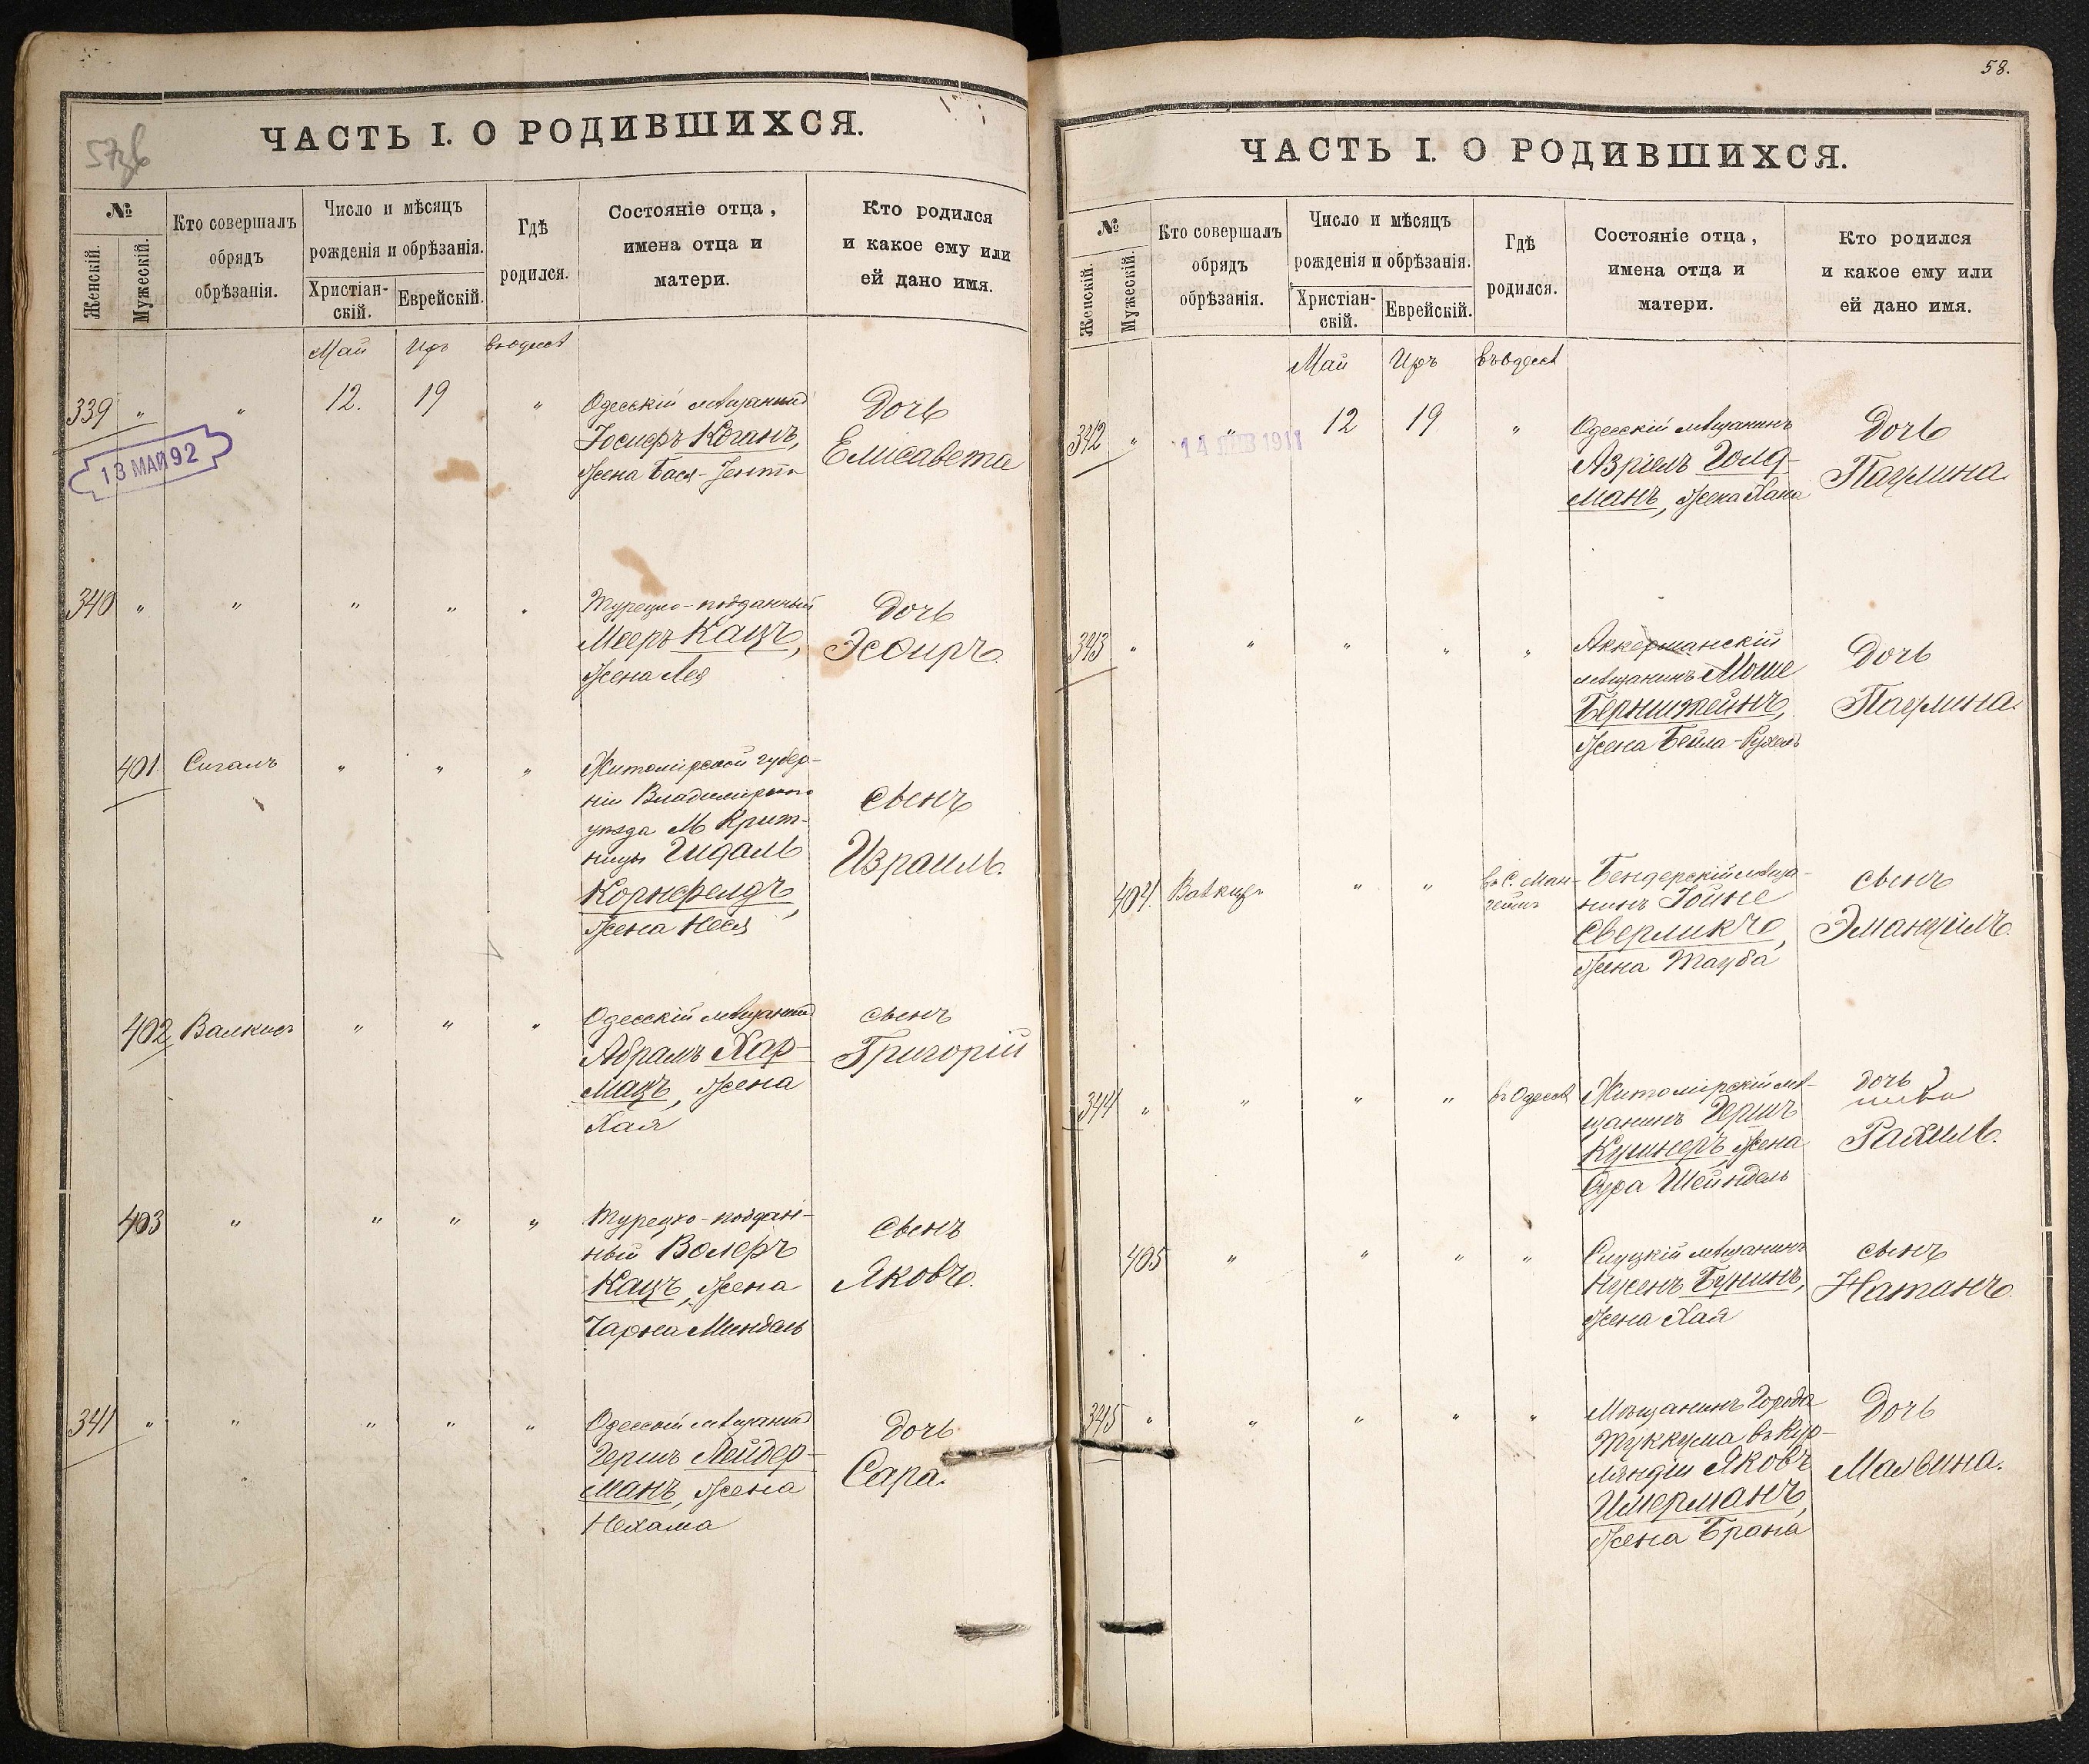 57об
ЧАСТЬ I. О РОДИВШИХСЯ.
№
Женскій.
Мужескій.
Кто совершалъ
обрядъ
обрѣзанія.
Число и мѣсяцъ
рожденія и обрѣзанія.
Христіан-
скій.
Еврейскій.
Гдѣ
родился.
Состояніе отца,
имена отца и
матери.
Кто родился
и какое ему или
ей дано имя.
Май Иръ въ Одессѣ
339 " " 12. 19 "
Одесскій мѣщанинъ
Іосифъ Коганъ,
жена Бася-Jента
Дочь
Елисавета
13 МАЙ 92
340 " " " " "
Турецко-подданный
Мееръ Кацъ,
жена Лея
Дочь
Эсѳирь
401 Сигалъ " " "
Житомірской губер-
ніи Владимірскаго
уѣзда М
Гидаль
Корнфельдъ,
жена Неся
сынъ
Израиль.
402 Валкисъ " " "
Одесскій мѣщанинъ
Абрамъ Хар-
мацъ, жена
Хая
сынъ
Григорій
403 " " " "
Турецко-поддан-
ный Волфъ
Кацъ, жена
Чарна Миндаль
сынъ
Яковъ.
341 " " " " "
Одесскій мѣщанинъ
Гершъ Лейдер-
манъ, жена
Нехама
Дочь
Сара.
58.
ЧАСТЬ I. О РОДИВШИХСЯ.
№
Женскій.
Мужескій.
Кто совершалъ
обрядъ
обрѣзанія.
Число и мѣсяцъ
рожденія и обрѣзанія.
Христіан-
скій.
Еврейскій.
Гдѣ
родился.
Состояніе отца,
имена отца и
матери.
Кто родился
и какое ему или
ей дано имя.
Май Иръ въ Одессѣ
342 " " 12 19 "
14 ЯНВ 1911
Одесскій мѣщанинъ
Азріель Голд-
манъ, жена Хана
Дочь
Паулина
343 " " " " "
Аккерманскій
мѣщанинъ Моше
Бернштейнъ,
жена Бейла-Рухель
Дочь
Паулина.
404.
" "
Бендерскій мѣща-
нинъ Іойне
Сверликъ,
жена Тауба
сынъ
Эмануилъ.
344 " " " " въ Одессѣ
Житомірскій мѣ-
щанинъ Гершъ
Кушнеръ, жена
Сура Шейндель
дочь
Рахиль.
405 " " " "
Слуцкій мѣщанинъ
Нусенъ Бунинъ,
жена Хая
сынъ
Натанъ.
345 " " " " "
Мѣщанинъ города
Туккума въ Кур-
ляндіи Яковъ
Имерманъ,
жена Брана
Дочь
Мальвина.